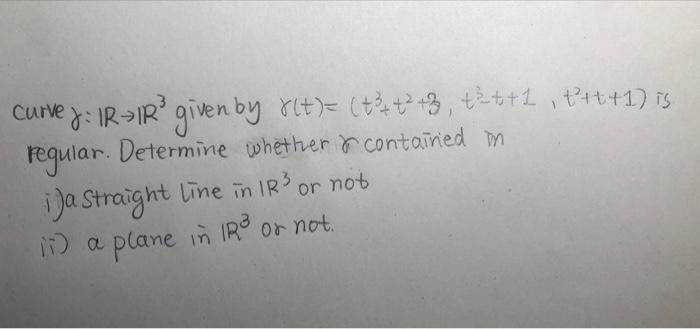 curve γ: IR→IR³ given by γ(t)= (t³+t²+3, t³-t+1, t²+t+1) is
regular. Determine whether γ contained in
i) a straight line in IR³ or not
ii) a plane in IR³ or not.